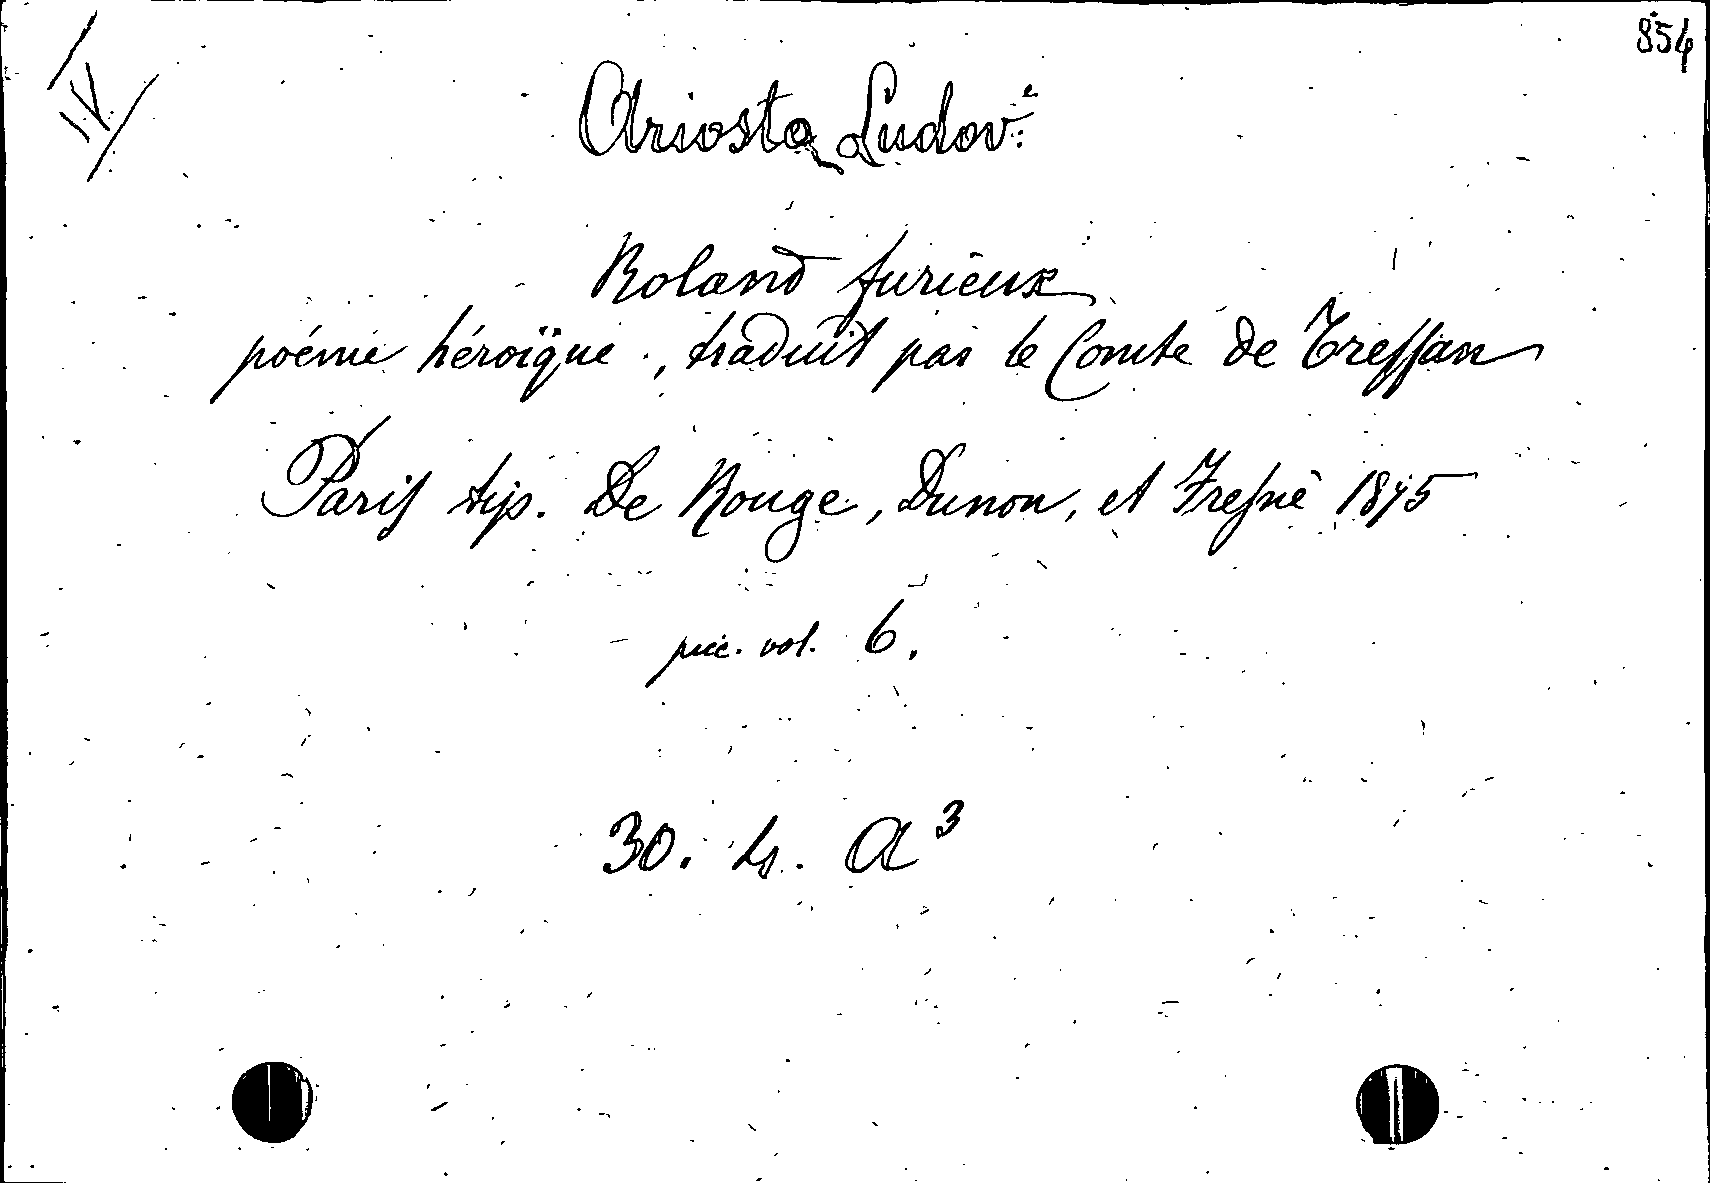 854
IV
Ariosto Ludov.º
Roland furieux
poéme héroïque, traduit par le Comte de Tressan
Paris tip. De Rouge, Dunon, et Fresnè 1875
pic. vol. 6.
30. h. A³